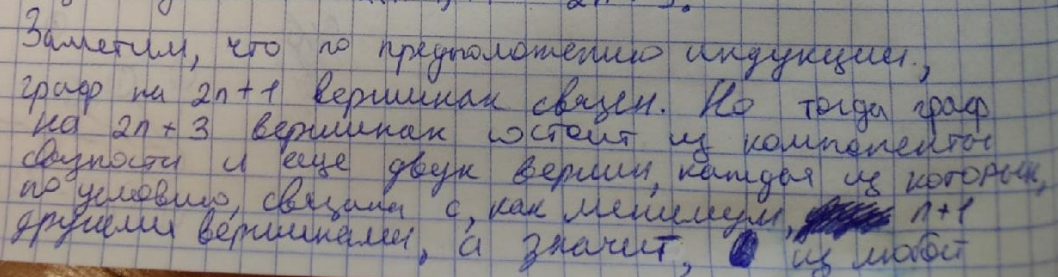 2n+3.
Заметим, что по предположению индукции,
граф на 2n+1 вершинах связен. Но тогда граф
на 2n+3 вершинах состоит из компоненты
связности и еще двух вершин, каждая из которых,
по условию, связана с, как минимум, n+1
другими вершинами, а значит, из любой